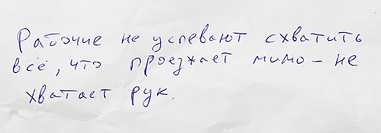 Рабочие не успевают схватить
всё, что проезжает мимо – не
хватает рук.